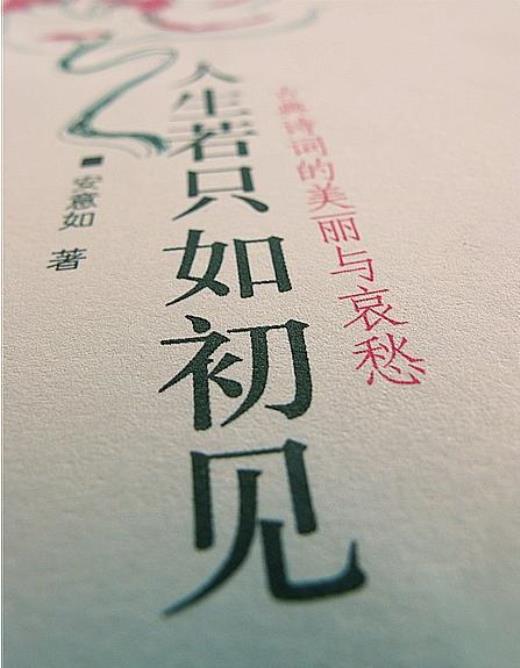 古典诗词的美丽与哀愁
人生若只如初见
安意如 著